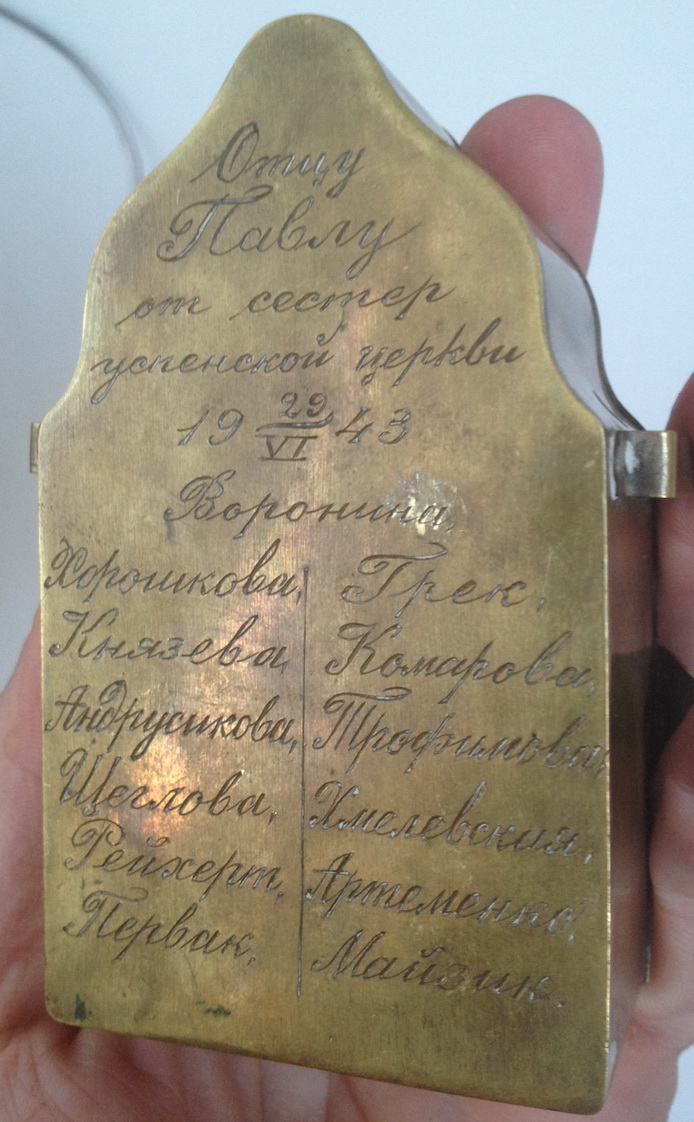 Отцу
Павлу
от сестер
успенской церкви
19 29/VI 43
Воронина,
Хорошкова,
Князева,
Андрусикова,
Щеглова,
Рейхерт,
Первак,
Грек,
Комарова,
Трофимова,
Хмелевския,
Артеменко,
Майзик.